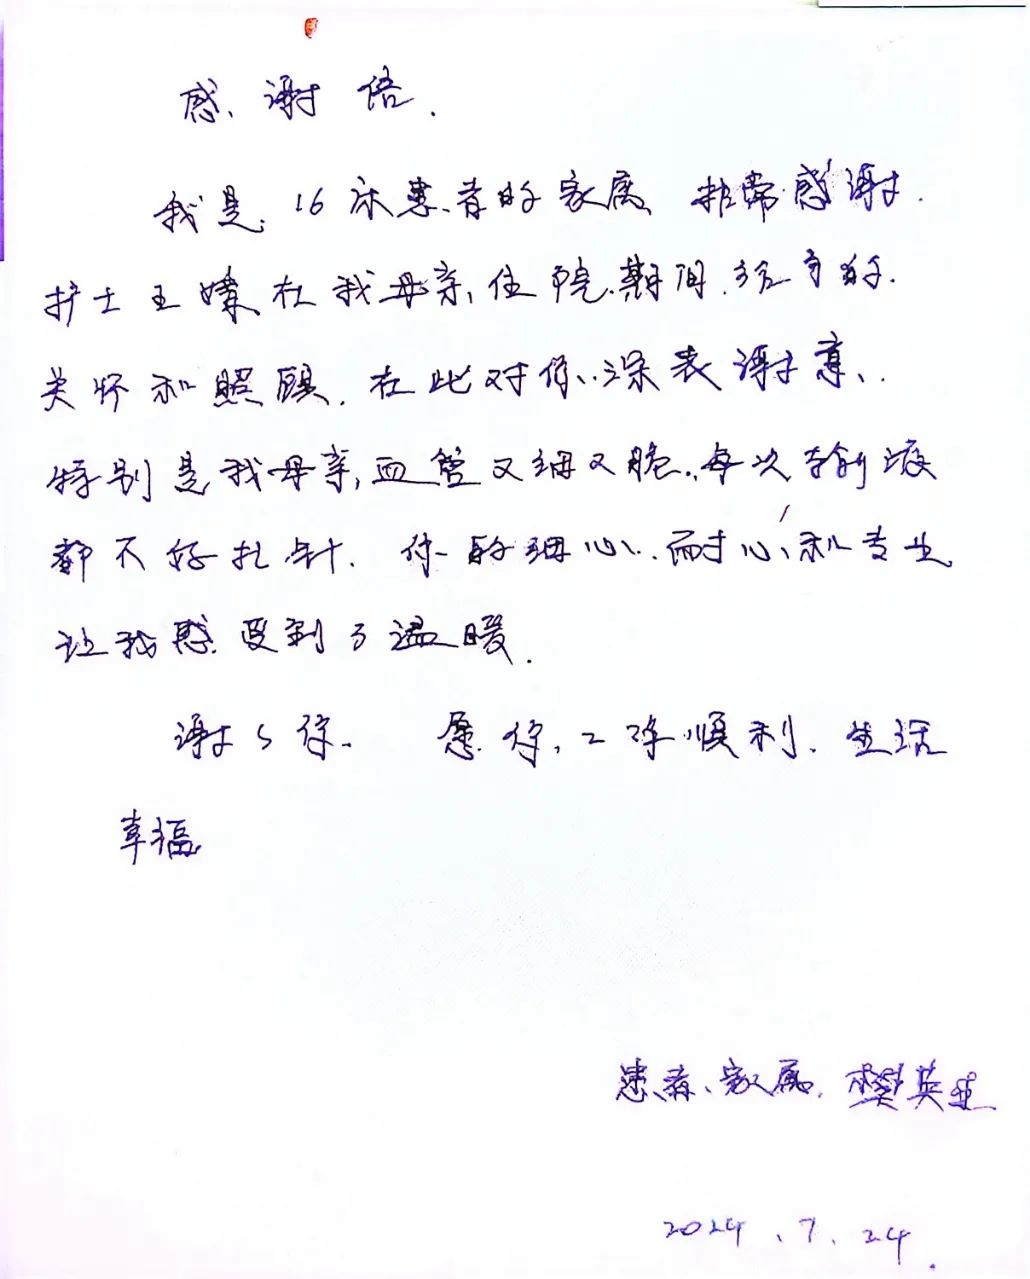 感谢信.
我是16床患者的家属 非常感谢.
护士王婕在我母亲住院期间.给予的.
关怀和照顾.在此对你深表谢意.
特别是我母亲,血管又细又脆.每次输液
都不好扎针.你的细心.耐心和专业
让我感受到了温暖.
谢谢你. 愿你工作顺利.生活
幸福
患者家属.樊英
2024.7.24.